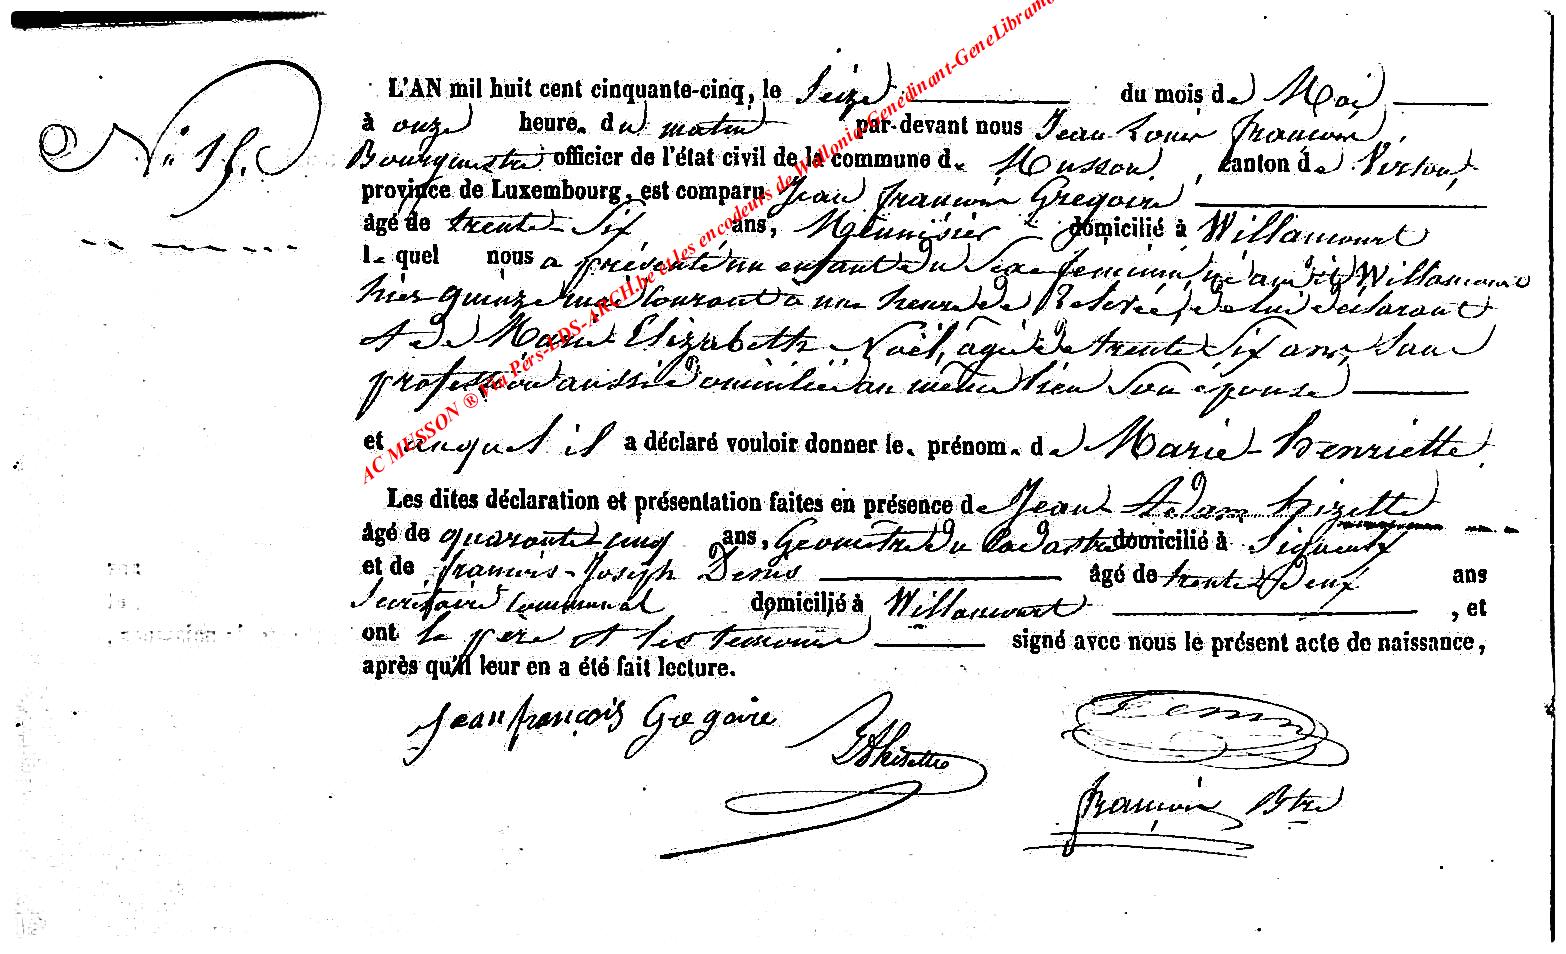 N.° 15.
L'AN mil huit cent cinquante-cinq, le Seize du mois de Mai
à onze heure. du matin par-devant nous Jean Louis françois,
Bourgmestre officier de l'état civil de la commune de Musson, canton de Virton,
province de Luxembourg, est comparu Jean françois Gregoire
âgé de trente-Six ans, Meunisier domicilié à Willancourt
le quel nous a présenté un enfant du Sexe feminin, né au dit Willancourt
hier quinze mai courant à une heure de Relevée, de lui déclarant
et de Marie Elizabeth Noël, âgée de trente Six ans, Sans
profession aussi domiciliée au même lieu Son épouse
et auquel il a déclaré vouloir donner le. prénom. de Marie-henriette.
Les dites déclaration et présentation faites en présence de Jean Adam hizette
âgé de quarante-cinq ans, Géomètre du Cadastre domicilié à Signeulx
et de françois-Joseph Denis âgé de trente Deux ans
Secrétaire communal domicilié à Willancourt, et
ont le père et les temoins signé avec nous le présent acte de naissance,
après qu'il leur en a été fait lecture.
Jean françois Gregoire
JAhizette
Denis
françois Btre
AC MUSSON ® Via Pers-LDS-ARCH.be et les encodeurs de Wallonia-Genedinant-GeneLibramo